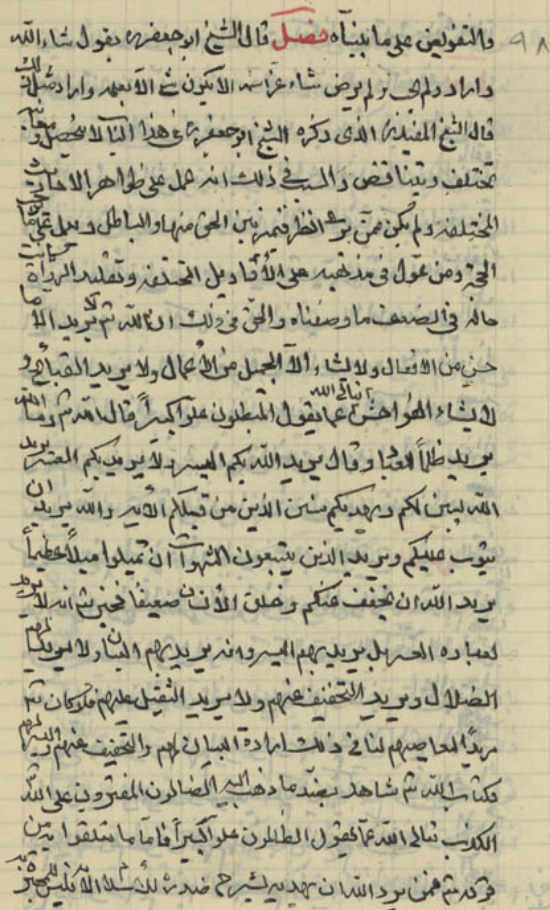 ٩٨
والتفويض على ما بيناه فصل قال الشيخ ابو جعفر ره نقول شاء الله
واراد ولم يحب ولم يرض شاء عز اسمه الا يكون شئ الا بعلمه واراد مثل ذلك
قال الشيخ المفيد ره الذى ذكره الشيخ ابو جعفر ره فى هذا الباب لا يتحصل ومعانيه
تختلف وتتناقض والسبب فى ذلك انه عمل على ظواهر الاحاديث
المختلفة ولم يكن ممن يرى النظر فيميز بين الحق منها والباطل ويعمل على ما يوجب
الحجة ومن عول فى مذهبه على الأقاويل المختلفة وتقليد الرواة كانت
حاله فى الضعف ما وصفناه والحق فى ذلك ان الله تع لا يريد الا ما
حسن من الافعال ولا يشاء الا الجميل من الأعمال ولا يريد القبائح و
لا يشاء الفواحش تعالى الله عما يقول المبطلون علوا كبيراً قال الله تع وما الله
يريد ظلماً للعباد وقال يريد الله بكم اليسر ولا يريد بكم العسر يريد
الله ليبين لكم ويهديكم سنن الذين من قبلكم الأية والله يريد ان
يتوب عليكم ويريد الذين يتبعون الشهوات ان تميلوا ميلاً عظيماً
يريد الله ان يخفف عنكم وخلق الأنسان ضعيفا فخبر تع انه لا يريد
لعباده العسر بل يريد بهم اليسر وانه يريد لهم البيان ولا يريد لهم
الضلال ويريد التخفيف عنهم ولا يريد التثقيل عليهم فلو كان تع
مريداً لمعاصيهم لنافى ذلك ارادة البيان لهم والتخفيف عنهم واليسر لهم
فكتاب الله تع شاهد بضد ما ذهب اليه الضالون المفترون على الله
الكذب تعالى الله عما يقول الظالمون علوا كبيراً فاما ما تعلقوا به من
قوله تع فمن يرد الله ان يهديه يشرح صدره للأسلام فليس للمجبرة به